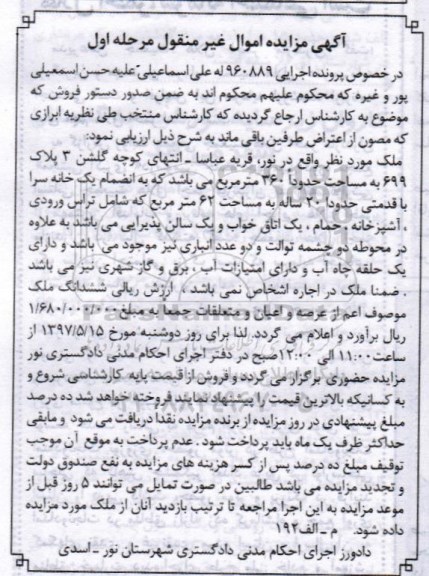 آگهی مزایده اموال غیر منقول مرحله اول
در خصوص پرونده اجرایی ۹۶۰۸۸۹ له علی اسماعیلی علیه حسن اسمعیلی
پور و غیره که محکوم علیهم محکوم اند به ضمن صدور دستور فروش که
موضوع به کارشناس ارجاع گردیده که کارشناس منتخب طی نظریه ابرازی
که مصون از اعتراض طرفین باقی ماند به شرح ذیل ارزیابی نمود:
ملک مورد نظر واقع در نور، قریه عباسا ـ انتهای کوچه گلشن ۳ پلاک
۶۹۹ به مساحت حدودا ۳۶۰ مترمربع می باشد که به انضمام یک خانه سرا
با قدمتی حدودا ۲۰ ساله به مساحت ۶۲ متر مربع که شامل تراس ورودی
، آشپزخانه ، حمام ، یک اتاق خواب و یک سالن پذیرایی می باشد به علاوه
در محوطه دو چشمه توالت و دو عدد انباری نیز موجود می باشد و دارای
یک حلقه چاه آب و دارای امتیازات آب ، برق و گاز شهری نیز می باشد
. ضمنا ملک در اجاره اشخاص نمی باشد ، ارزش ریالی ششدانگ ملک
موصوف اعم از عرصه و اعیان و متعلقات جمعا به مبلغ ۱/۶۸۰/۰۰۰/۰۰۰
ریال برآورد و اعلام می گردد. لذا برای روز دوشنبه مورخ ۱۳۹۷/۵/۱۵ از
ساعت ۱۱:۰۰ الی ۱۲:۰۰ صبح در دفتر اجرای احکام مدنی دادگستری نور
مزایده حضوری برگزار می گردد و فروش از قیمت پایه کارشناسی شروع و
به کسانیکه بالاترین قیمت را پیشنهاد نمایند فروخته خواهد شد ده درصد
مبلغ پیشنهادی در روز مزایده از برنده مزایده نقدا دریافت می شود و مابقی
حداکثر ظرف یک ماه باید پرداخت شود . عدم پرداخت به موقع آن موجب
توقیف مبلغ ده درصد پس از کسر هزینه های مزایده به نفع صندوق دولت
و تجدید مزایده می باشد طالبین در صورت تمایل می توانند ۵ روز قبل از
موعد مزایده به این اجرا مراجعه تا ترتیب بازدید آنان از ملک مورد مزایده
داده شود. م ـ الف ۱۹۲
دادورز اجرای احکام مدنی دادگستری شهرستان نور ـ اسدی